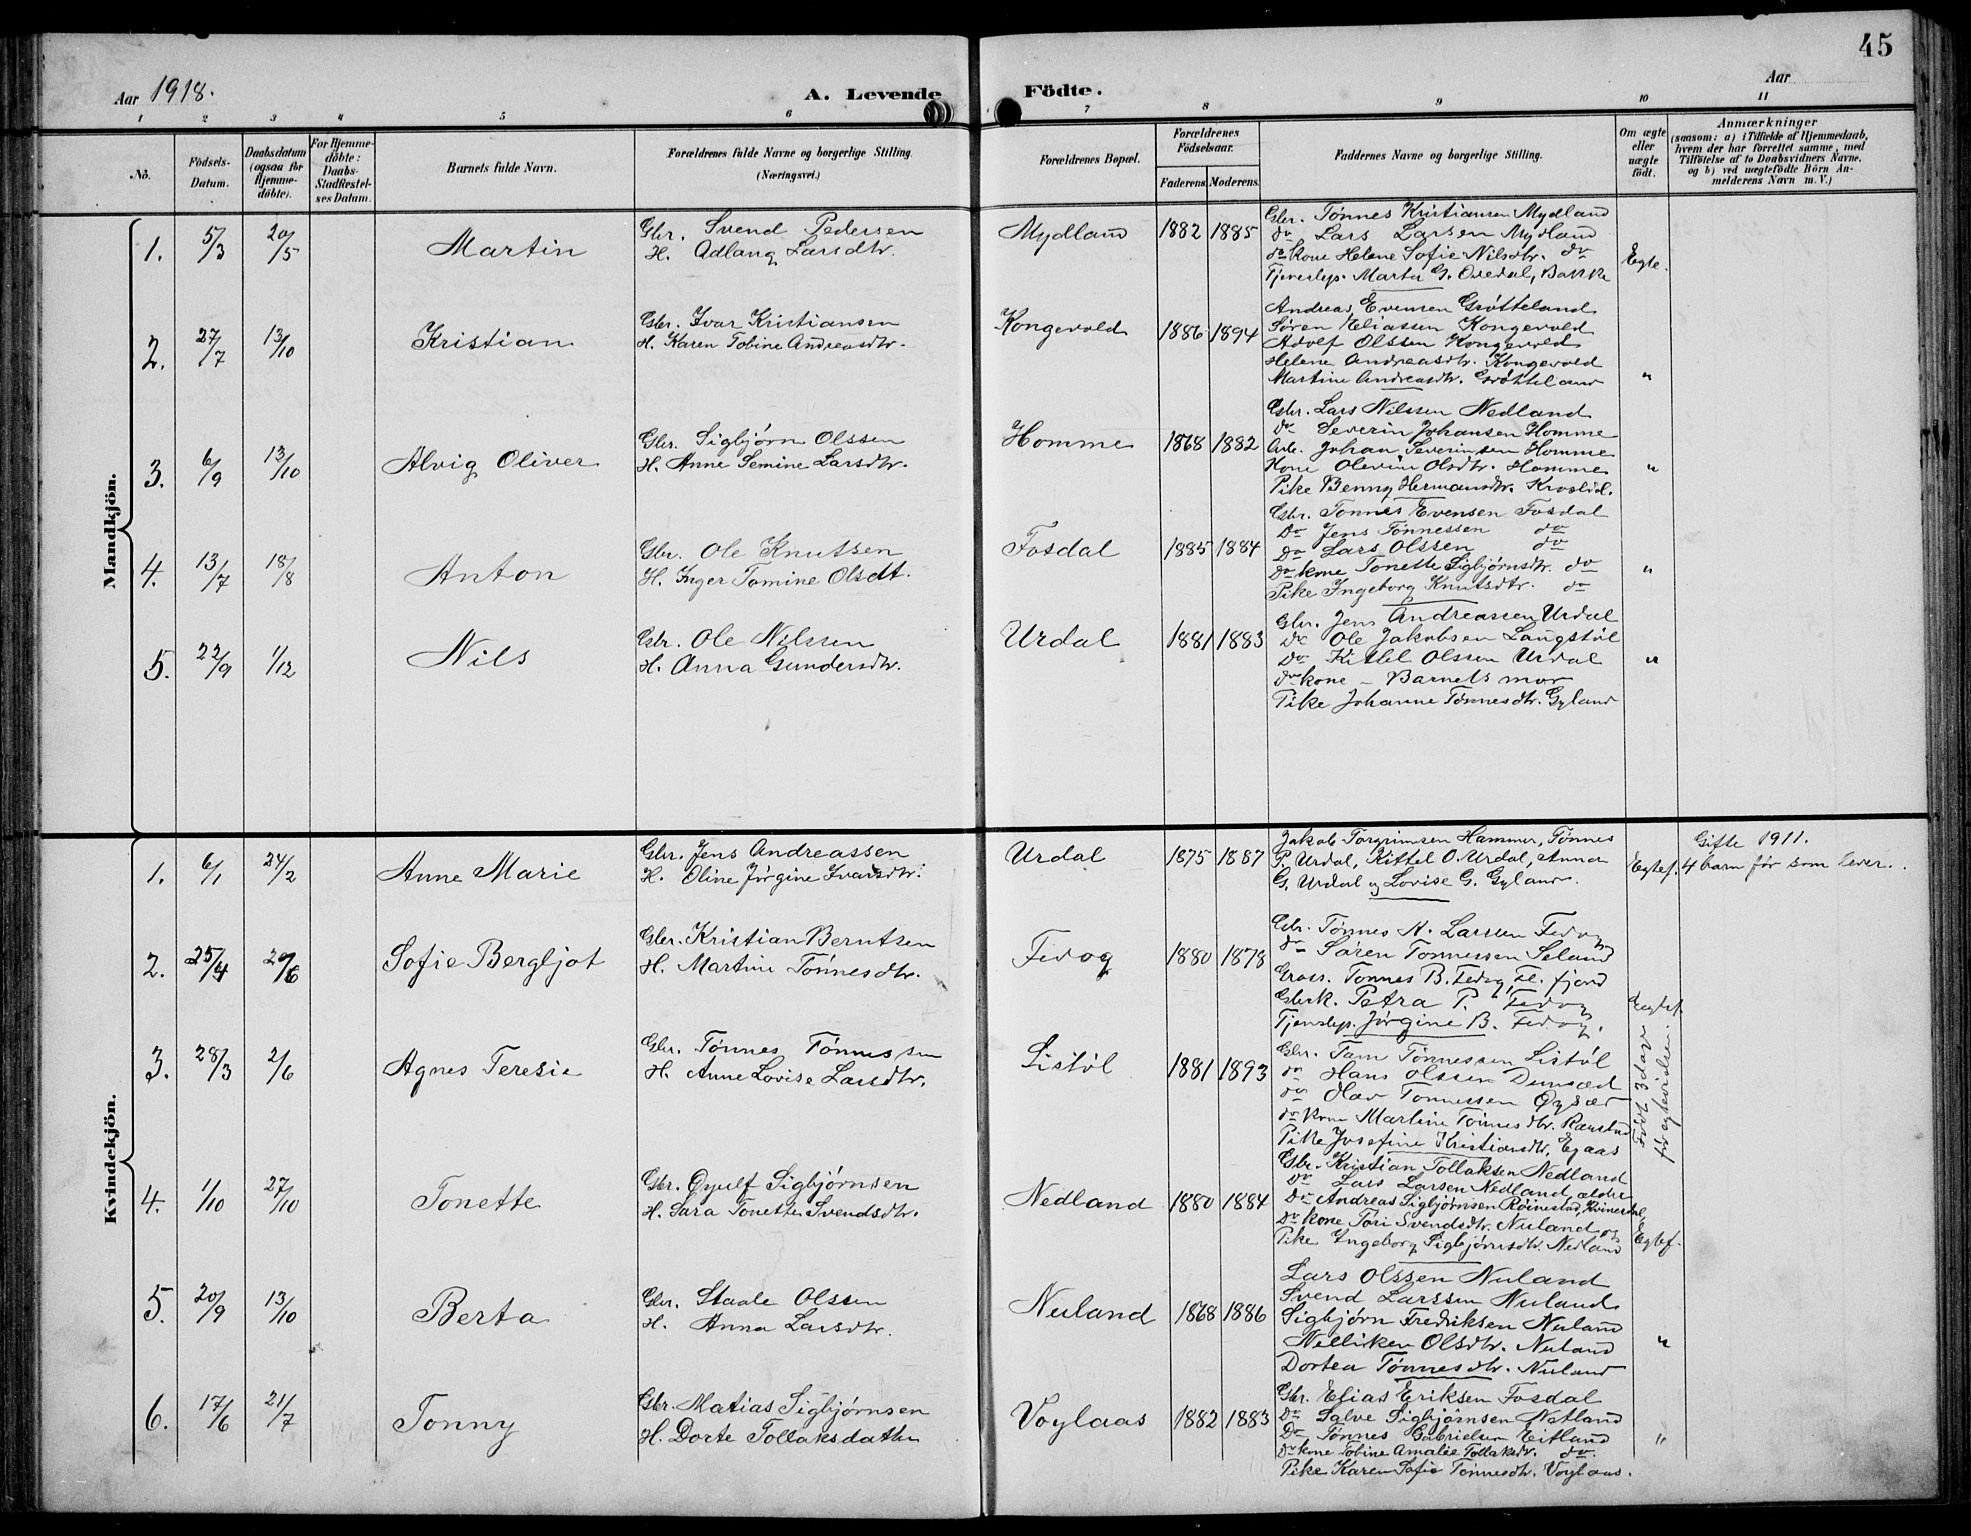 45
Aar 1918.
A. Levende Födte.
Aar
1 2 3 4 5 6 7 8 9 10 11
No.
Födsels-Datum.
Daabsdatum (ogsaa for Hjemme-döbte).
For Hjemme-döbte: Daabs-Stadfæstel-ses Datum.
Barnets fulde Navn.
Forældrenes fulde Navne og borgerlige Stilling.
(Næringsvei.)
Forældrenes Bopæl.
Forældrenes Födselsaar.
Faderens. Moderens.
Faddernes Navne og borgerlige Stilling.
Om ægte eller uægte födt.
Anmærkninger
(saasom: a) i Tilfælde af Hjemmedaab, hvem der har forrettet samme, med Tilföielse af to Daabsvidners Navne, og b) ved uægtefödte Börn An-melderens Navn m. V.)
Mandkjön.
1. 5/3 20/5 Martin
Gbr. Svend Pedersen
H. Adlang Larsdtr.
Mydland 1882 1885
Gbr. Tønnes Kristiansen Mydland
do Lars Larsen Mydland
do kone Helene Sofie Nilsdtr. do
Tjenestep. Marta G. Osedal, Bakke
Egte.
2. 27/7 13/10 Kristian
Gbr. Ivar Kristiansen
H. Karen Tobine Andreasdtr.
Kongevold 1886 1894
Andreas Evensen Grøtteland
Søren Eliassen Kongevold
Adolf Olssen Kongevold
Helene Andreasdtr. Kongevold
Martine Andreasdtr. Grøtteland
"
3. 6/9 13/10 Alvig Oliver
Gbr. Sigbjørn Olssen
H. Anne Semine Larsdtr.
Homme 1868 1882
Gbr. Lars Nilssen Nedland
do Severin Johansen Homme
Arb. Johan Severinsen Homme
Kone Olevine Olsdtr. Homme
Pike Benny Hermansdtr. Kroslid.
"
4. 13/7 18/8 Anton
Gbr. Ole Knutsen
H. Inger Tomine Olsdt.
Fosdal 1885 1884
Gbr. Tønnes Evensen Fosdal
Do Jens Tønnessen do
Do Lars Olssen do
do kone Tonette Sigbjørnsdtr. do
Pike Ingeborg Knutsdtr. do
"
5. 22/9 1/12 Nils
Gbr. Ole Nilssen
H. Anna Gundersdtr.
Urdal 1881 1883
Gbr. Jens Andreassen Urdal
Do Ole Jakobsen Langstøl
Do Kittel Olssen Urdal
do kone – Barnets mor
Pike Johanne Tønnesdtr. Gyland
"
Kvindekjön.
1. 6/1 24/2 Anne Marie
Gbr. Jens Andreassen
H. Oline Jørgine Ivarsdtr.
Urdal 1875 1887
Jakob Torgrimsen Hammer, Tønnes
P. Urdal, Kittel O. Urdal, Anna
G. Urdal og Lovise G. Gyland.
Egtef.
Gifte 1911.
4 barn før som lever.
2. 25/4 20/6 Sofie Bergljot
Gbr. Kristian Berntsen
H. Martine Tønnesdtr.
Fedog 1880 1878
Gbr. Tønnes K. Larssen Fedog
do Søren Tønnessen Seland
Gross. Tønnes B. Fedog, Fl. fjord
Gbrk. Petra P. Fedog
Tjenstep. Jørgine B. Fedog.
Egtef.
3. 28/3 2/6 Agnes Teresie
Gbr. Tønnes Tønnessen
H. Anne Lovise Larsdtr.
Listøl 1881 1893
Gbr. Tam Tønnessen Listøl
do Hans Olssen
do Olav Tønnessen
do kone Martine Tønnesdtr.
Pike Josefine Kristiansdtr. Egaas
Født 3 dage før egtevielsen.
4. 1/10 27/10 Tonette
Gbr. Øyulf Sigbjørnsen
H. Sara Tonette Svendsdtr.
Nedland 1880 1884
Gbr. Kristian Tollaksen Nedland
do Lars Larsen Nedland, ældre
Do Andreas Sigbjørnsen Røinestad, Kvinesdal,
do kone Tøri Svendsdtr. Nuland og
Pike Ingeborg Sigbjørnsdtr. Nedland
Egtef.
5. 20/9 13/10 Berta
Gbr. Staale Olssen
H. Anna Larsdtr.
Nuland 1868 1886
Lars Olssen Nuland
Svend Larssen Nuland
Sigbjørn Fredriksen Nuland
Nelliken Olsdtr. Nuland
Dortea Tønnesdtr. Nuland
"
6. 17/6 21/7 Tonny
Gbr. Matias Sigbjørnsen
H. Dorte Tollaksdatter
Voylaas 1882 1883
Gbr. Elias Eriksen Fosdal
Do Salve Sigbjørnsen Netland
Do Tønnes Gabrielsen Eitland
do kone Tobine Amalie Tollaksdr. do.
Pike Karen Sofie Tønnesdtr. Voylaas.
"